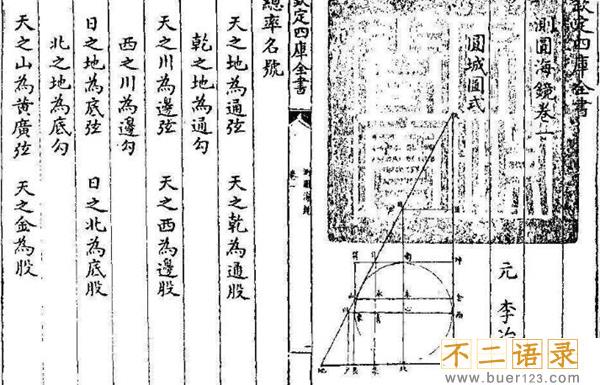 欽定四庫全書
測圓海鏡卷一
元 李冶
圓城圖式
欽定四庫全書
測圓海鏡
卷一
總率名號
天之地為通弦 天之乾為通股
乾之地為通勾
天之川為邊弦 天之西為邊股
西之川為邊勾
日之地為底弦 日之北為底股
北之地為底勾
天之山為黃廣弦 天之金為股
不二语录
www.buer123.com